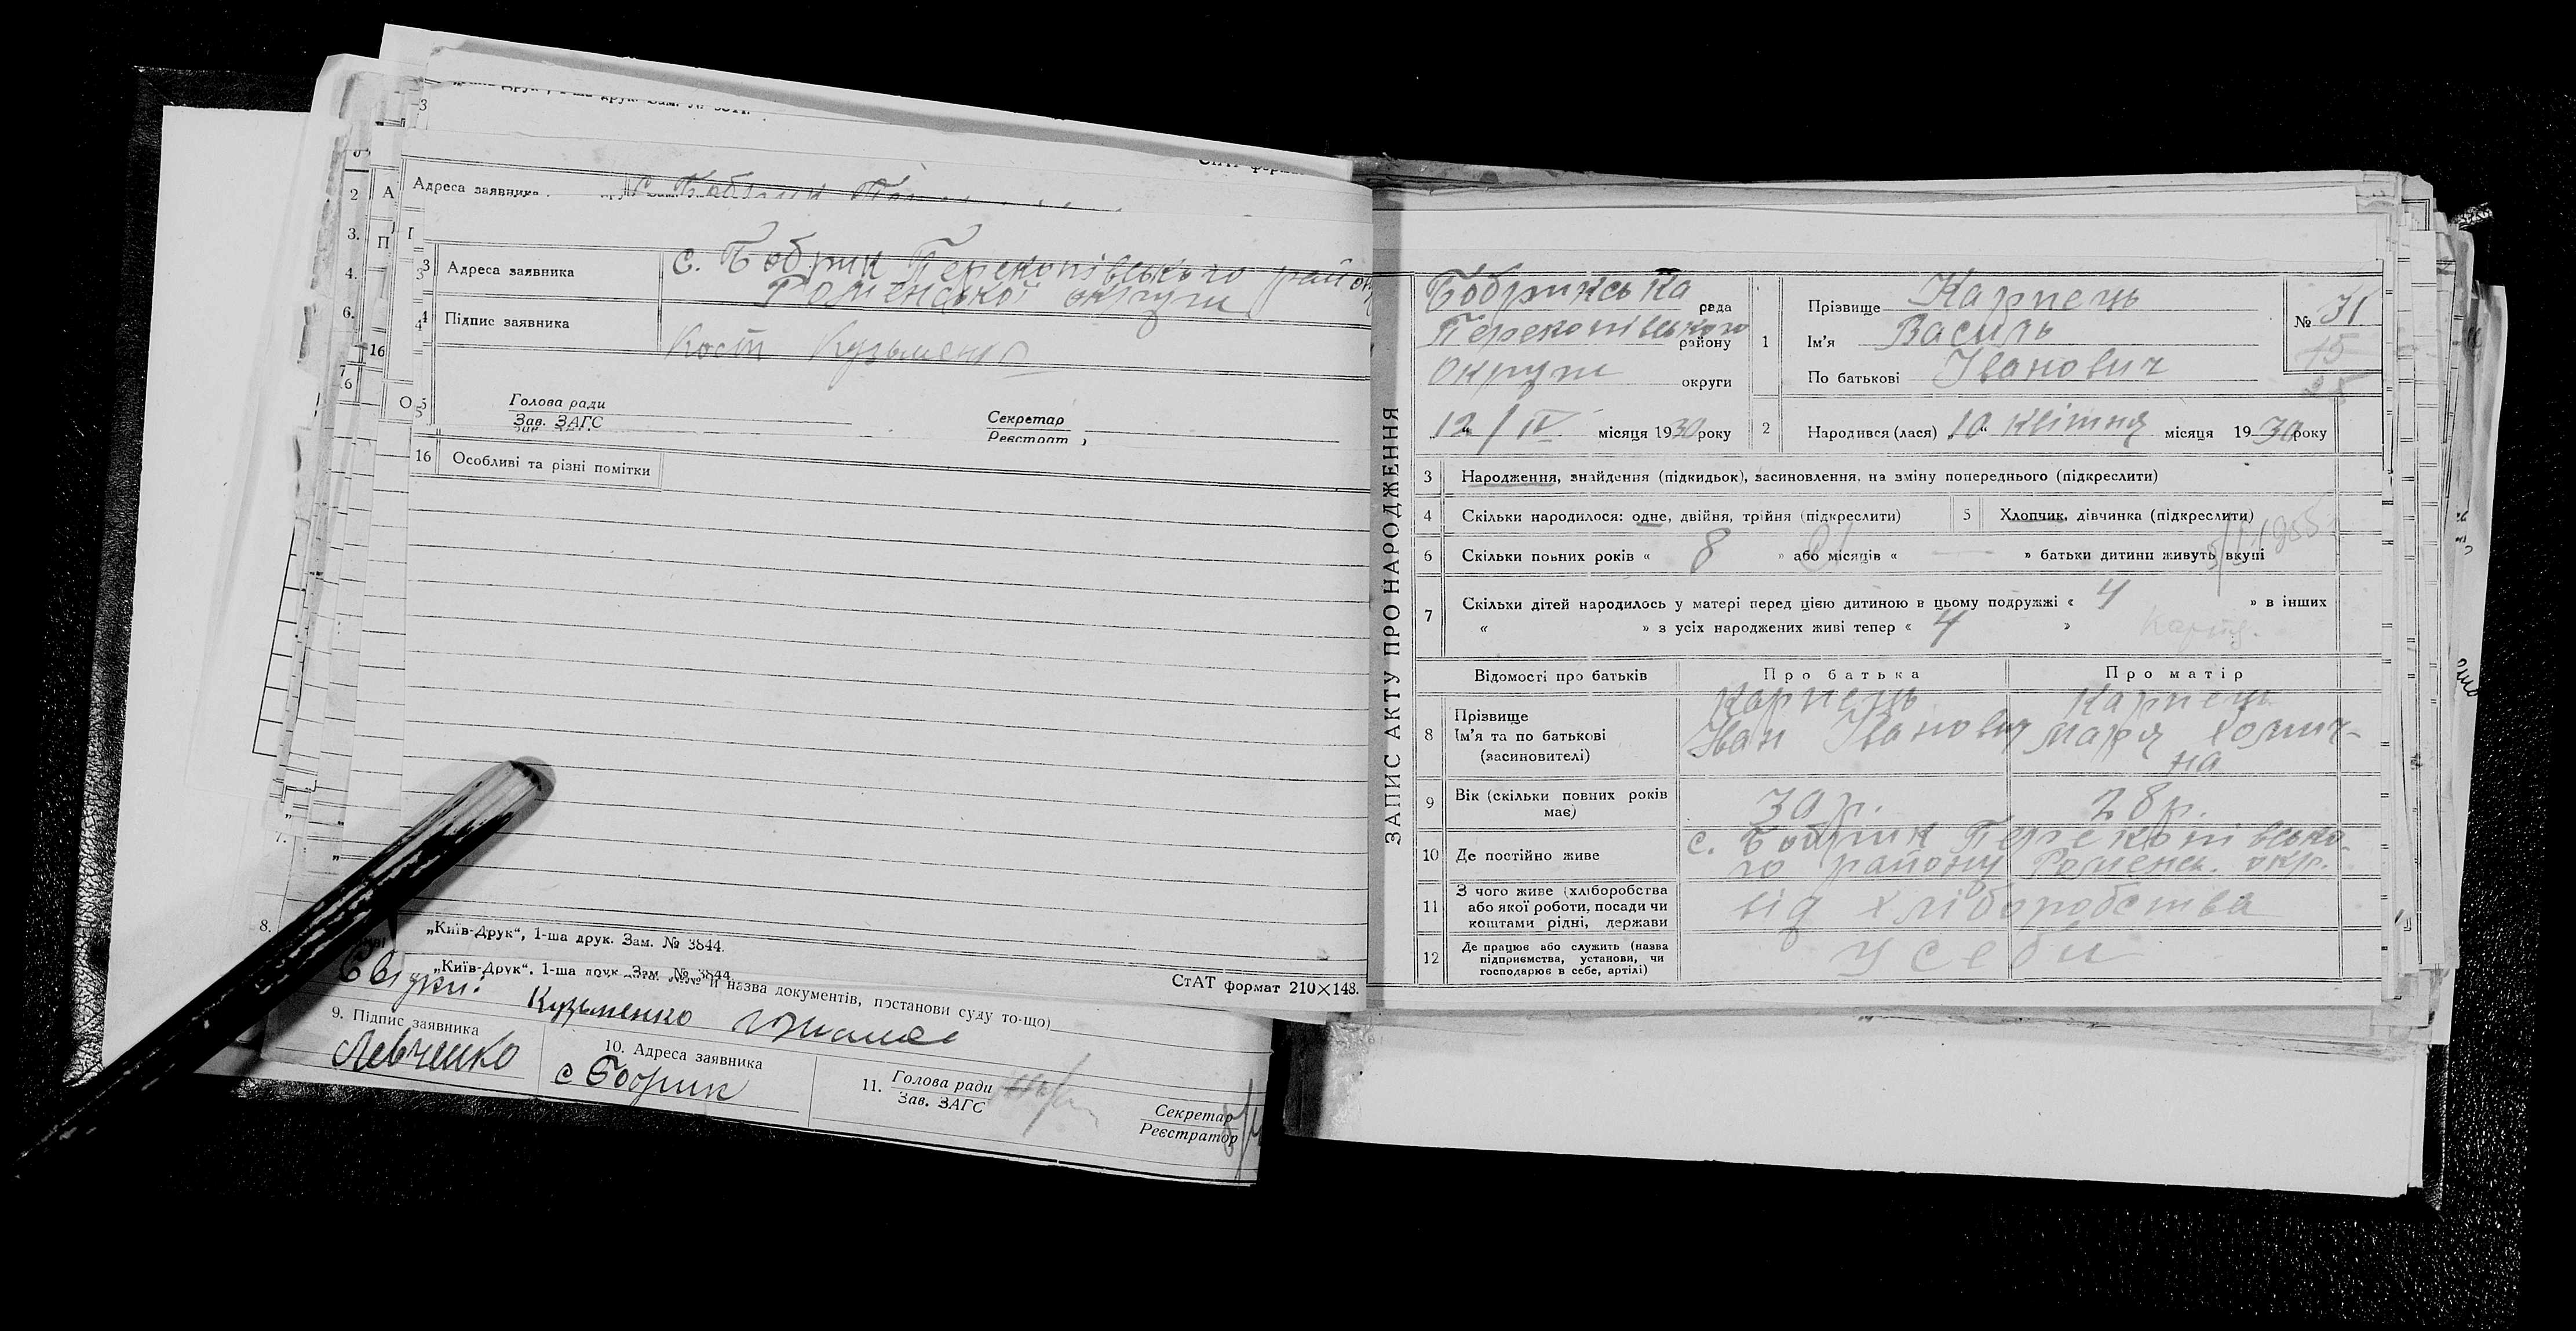 Адреса заявника
3 Адреса заявника с. Бобрик Перекопівського району
Роменської округи
4 Підпис заявника Кость Кузьменко
Голова ради
Зав. ЗАГС
Секретар
Реєстрат
16 Особливі та різні помітки
„Київ-Друк“, 1-ша друк. Зам. № 3844.
„Київ-Друк“, 1-ша друк. Зам. № 3844
СтАТ формат 210×148.
й назва документів, постанови суду то-що)
Свідки: Кузьменко
9. Підпис заявника
Левченко
10. Адреса заявника
с Бобрик
11. Голова ради
Зав. ЗАГС
Секретар
Реєстратор
ЗАПИС АКТУ ПРО НАРОДЖЕННЯ
Бобринська рада
Перекопівського району
округи округи
„12“ / IV місяця 1930 року
1 Прізвище Карпець
Ім'я Василь
По батькові Іванович
№ 31
15
2 Народився (лася) „10“ квітня місяця 1930 року
3 Народження, знайдення (підкидьок), засиновлення, на зміну попереднього (підкреслити)
4 Скільки народилося: одне, двійня, трійня (підкреслити)
5 Хлопчик, дівчинка (підкреслити)
6 Скільки повних років « 8 » або місяців « — » батьки дитини живуть вкупі
7 Скільки дітей народилось у матері перед цією дитиною в цьому подружжі « 4 » в інших
« » з усіх народжених живі тепер « 4 »
Відомості про батьків Про батька Про матір
8 Прізвище Ім'я та по батькові (засиновителі)
Карпець Іван Іванович
Карпець Марія Хомич-
на
9 Вік (скільки повних років має) 30 р. 28 р.
10 Де постійно живе с. Бобрик Перекопівсько-
го району Роменськ. окр.
11 З чого живе (хліборобства або якої роботи, посади чи коштами рідні, держави від хліборобства
12 Де працює або служить (назва підприємства, установи, чи господарює в себе, артілі) У себе